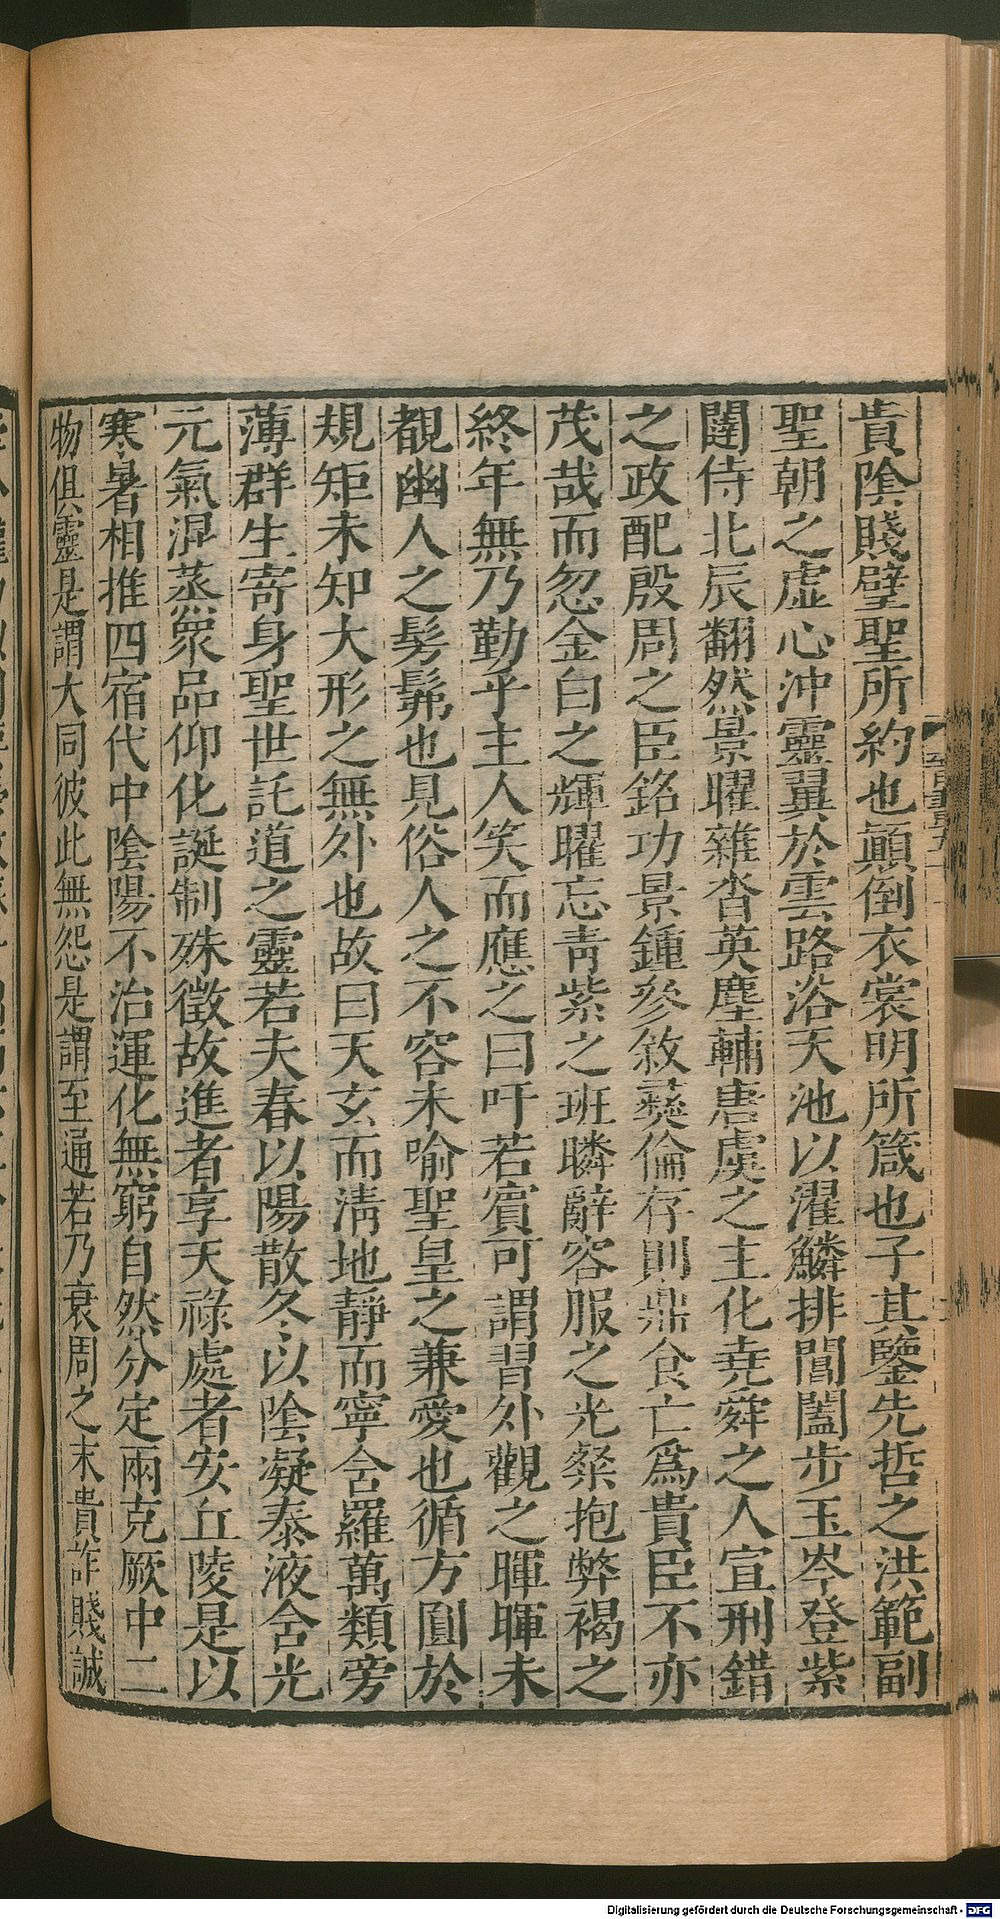 貴陰賤璧聖所約也顛倒衣裳明所箴也子其鑒先哲之洪範副
聖朝之虛心沖靈翼於雲路浴天池以濯鱗排閶闔步玉岑登紫
闥侍北辰翻然景曜雜沓英塵輔唐虞之主化堯舜之人宣刑錯
之政配殷周之臣銘功景鍾參敘彝倫存則鼎食亡爲貴臣不亦
茂哉而忽金白之輝曜忘青紫之班瞵辭容服之光粲抱弊褐之
終年無乃勤乎主人笑而應之曰吁若賓可謂習外觀之暉暉未
覩幽人之髣髴也見俗人之不容未喻聖皇之兼愛也循方圓於
規矩未知大形之無外也故曰天玄而清地靜而寧含羅萬類旁
薄群生寄身聖世託道之靈若夫春以陽散冬以陰凝泰液含光
元氣混蒸衆品仰化誕制殊徵故進者享天祿處者安丘陵是以
寒暑相推四宿代中陰陽不治運化無窮自然分定兩克厥中二
物俱靈是謂大同彼此無怨是謂至通若乃衰周之末貴詐賤誠
Digitalisierung gefördert durch die Deutsche Forschungsgemeinschaft - DFG